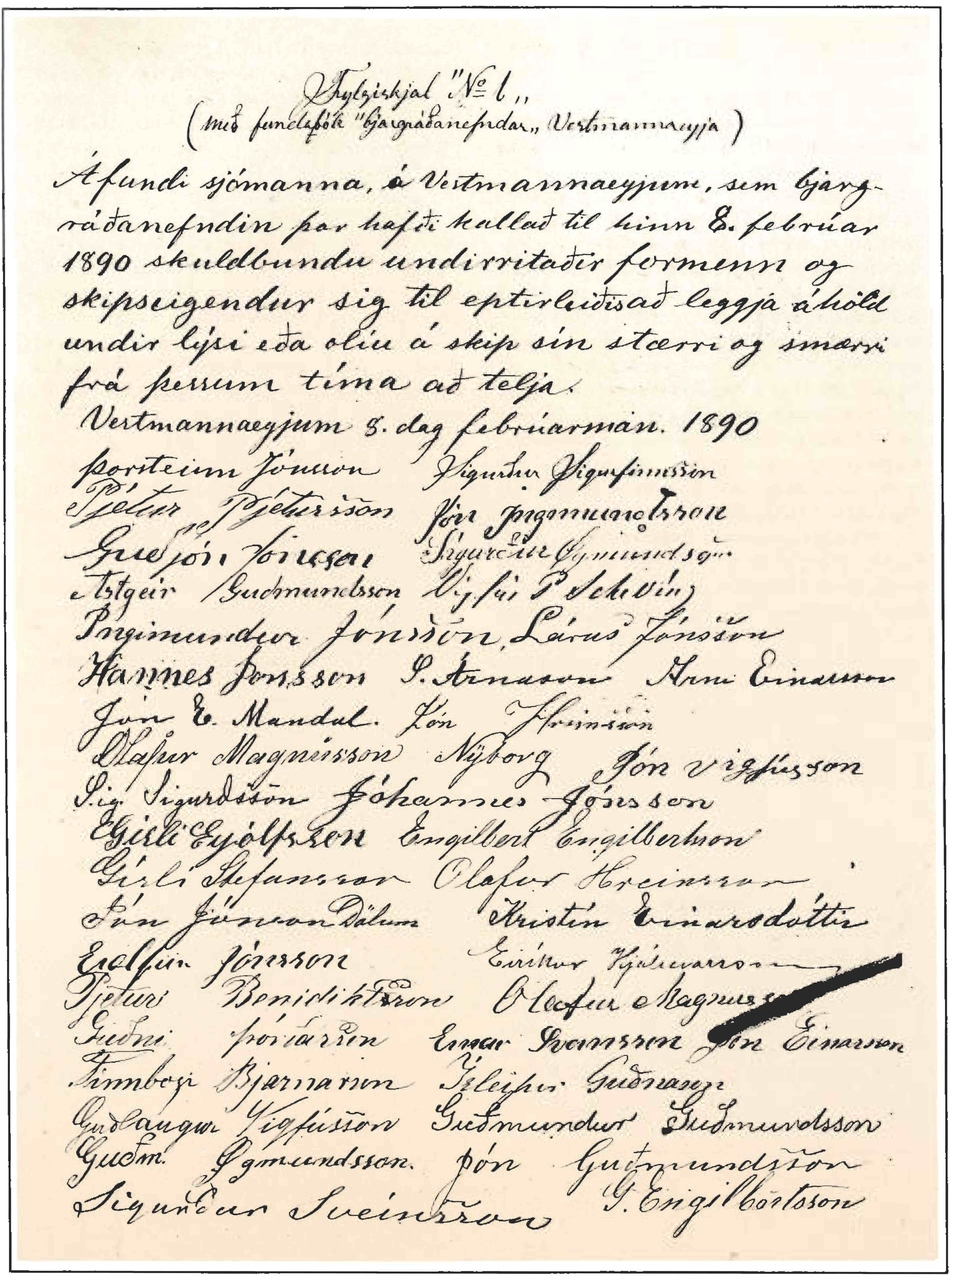 Fylgiskjal "No 1„
(með fundabók "bjargráðanefndar„ Vestmannaeyja)
Á fundi sjómanna, á Vestmannaeyjum, sem bjarg-
ráðanefndin þar hafði kallað til hinn 8. febrúar
1890 skuldbundu undirritaðir formenn og
skipseigendur sig til eptirleiðis að leggja áhöld
undir lýsi eða olíu á skip sín stærri og smærri
frá þessum tíma að telja.
Vestmannaeyjum 8. dag febrúarmán. 1890
Þorsteinn Jónsson Sigurður Sigurfinnsson
Pjetur Pjetursson Jón Ingimundsson
Guðjón Jónsson Sigurður Ögmundsson
Ástgeir Guðmundsson Vigfús P Schving
Íngimundur Jónsson, Lárus Jónsson
Hannes Jónsson S. Árnason Árni Einarsson
Jón E. Mandal. Jón Hreinsson
Ólafur Magnússon Nýborg Jón Vigfússon
Sig. Sigurðsson Jóhannes Jónsson
Gísli Eyjólfsson Engilbert Engilbertsson
Gísli Stefansson Olafur Hreinsson
Jón Jónson Dölum Kristín Einarsdóttir
Jónsson Eiríkur Hjálmarsson
Pjetur Benidiktsson Olafur Magnusson
Guðni Þórðarson Einar Sveinsson Jón Einarsson
Finnbogi Bjarnarson Ísleifur Guðnason
Guðlaugur Vigfússon Guðmundur Guðmundsson
Guðm. Øgmundsson. Jón Guðmundsson
Sigurður Sveinsson G. Engilbertsson